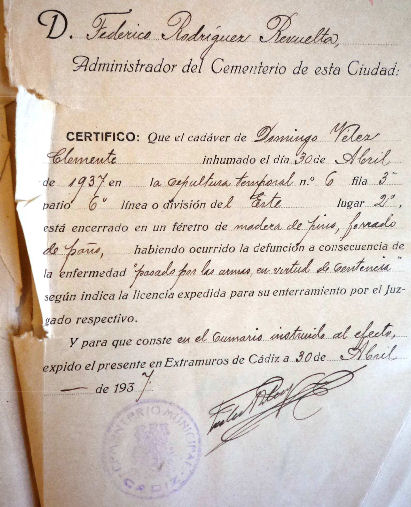 D. Federico Rodríguez Revuelta,
Administrador del Cementerio de esta Ciudad:
CERTIFICO: Que el cadáver de Domingo Velez
Clemente inhumado el día 30 de Abril
de 1937 en la sepultura temporal n.º 6 fila 3ª
patio 6º línea o división del Este lugar 2º,
está encerrado en un féretro de madera de pino, forrado
de paño, habiendo ocurrido la defunción a consecuencia de
la enfermedad "pasado por las armas, en virtud de sentencia"
según indica la licencia expedida para su enterramiento por el Juz-
gado respectivo.
Y para que conste en el Sumario instruido al efecto,
expido el presente en Extramuros de Cádiz a 30 de Abril
— de 1937
CEMENTERIO MUNICIPAL
CADIZ